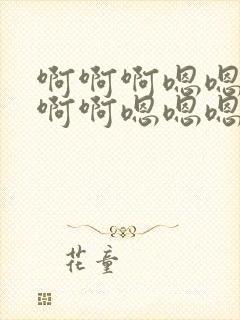 啊啊啊嗯嗯
啊啊嗯嗯嗯
花童